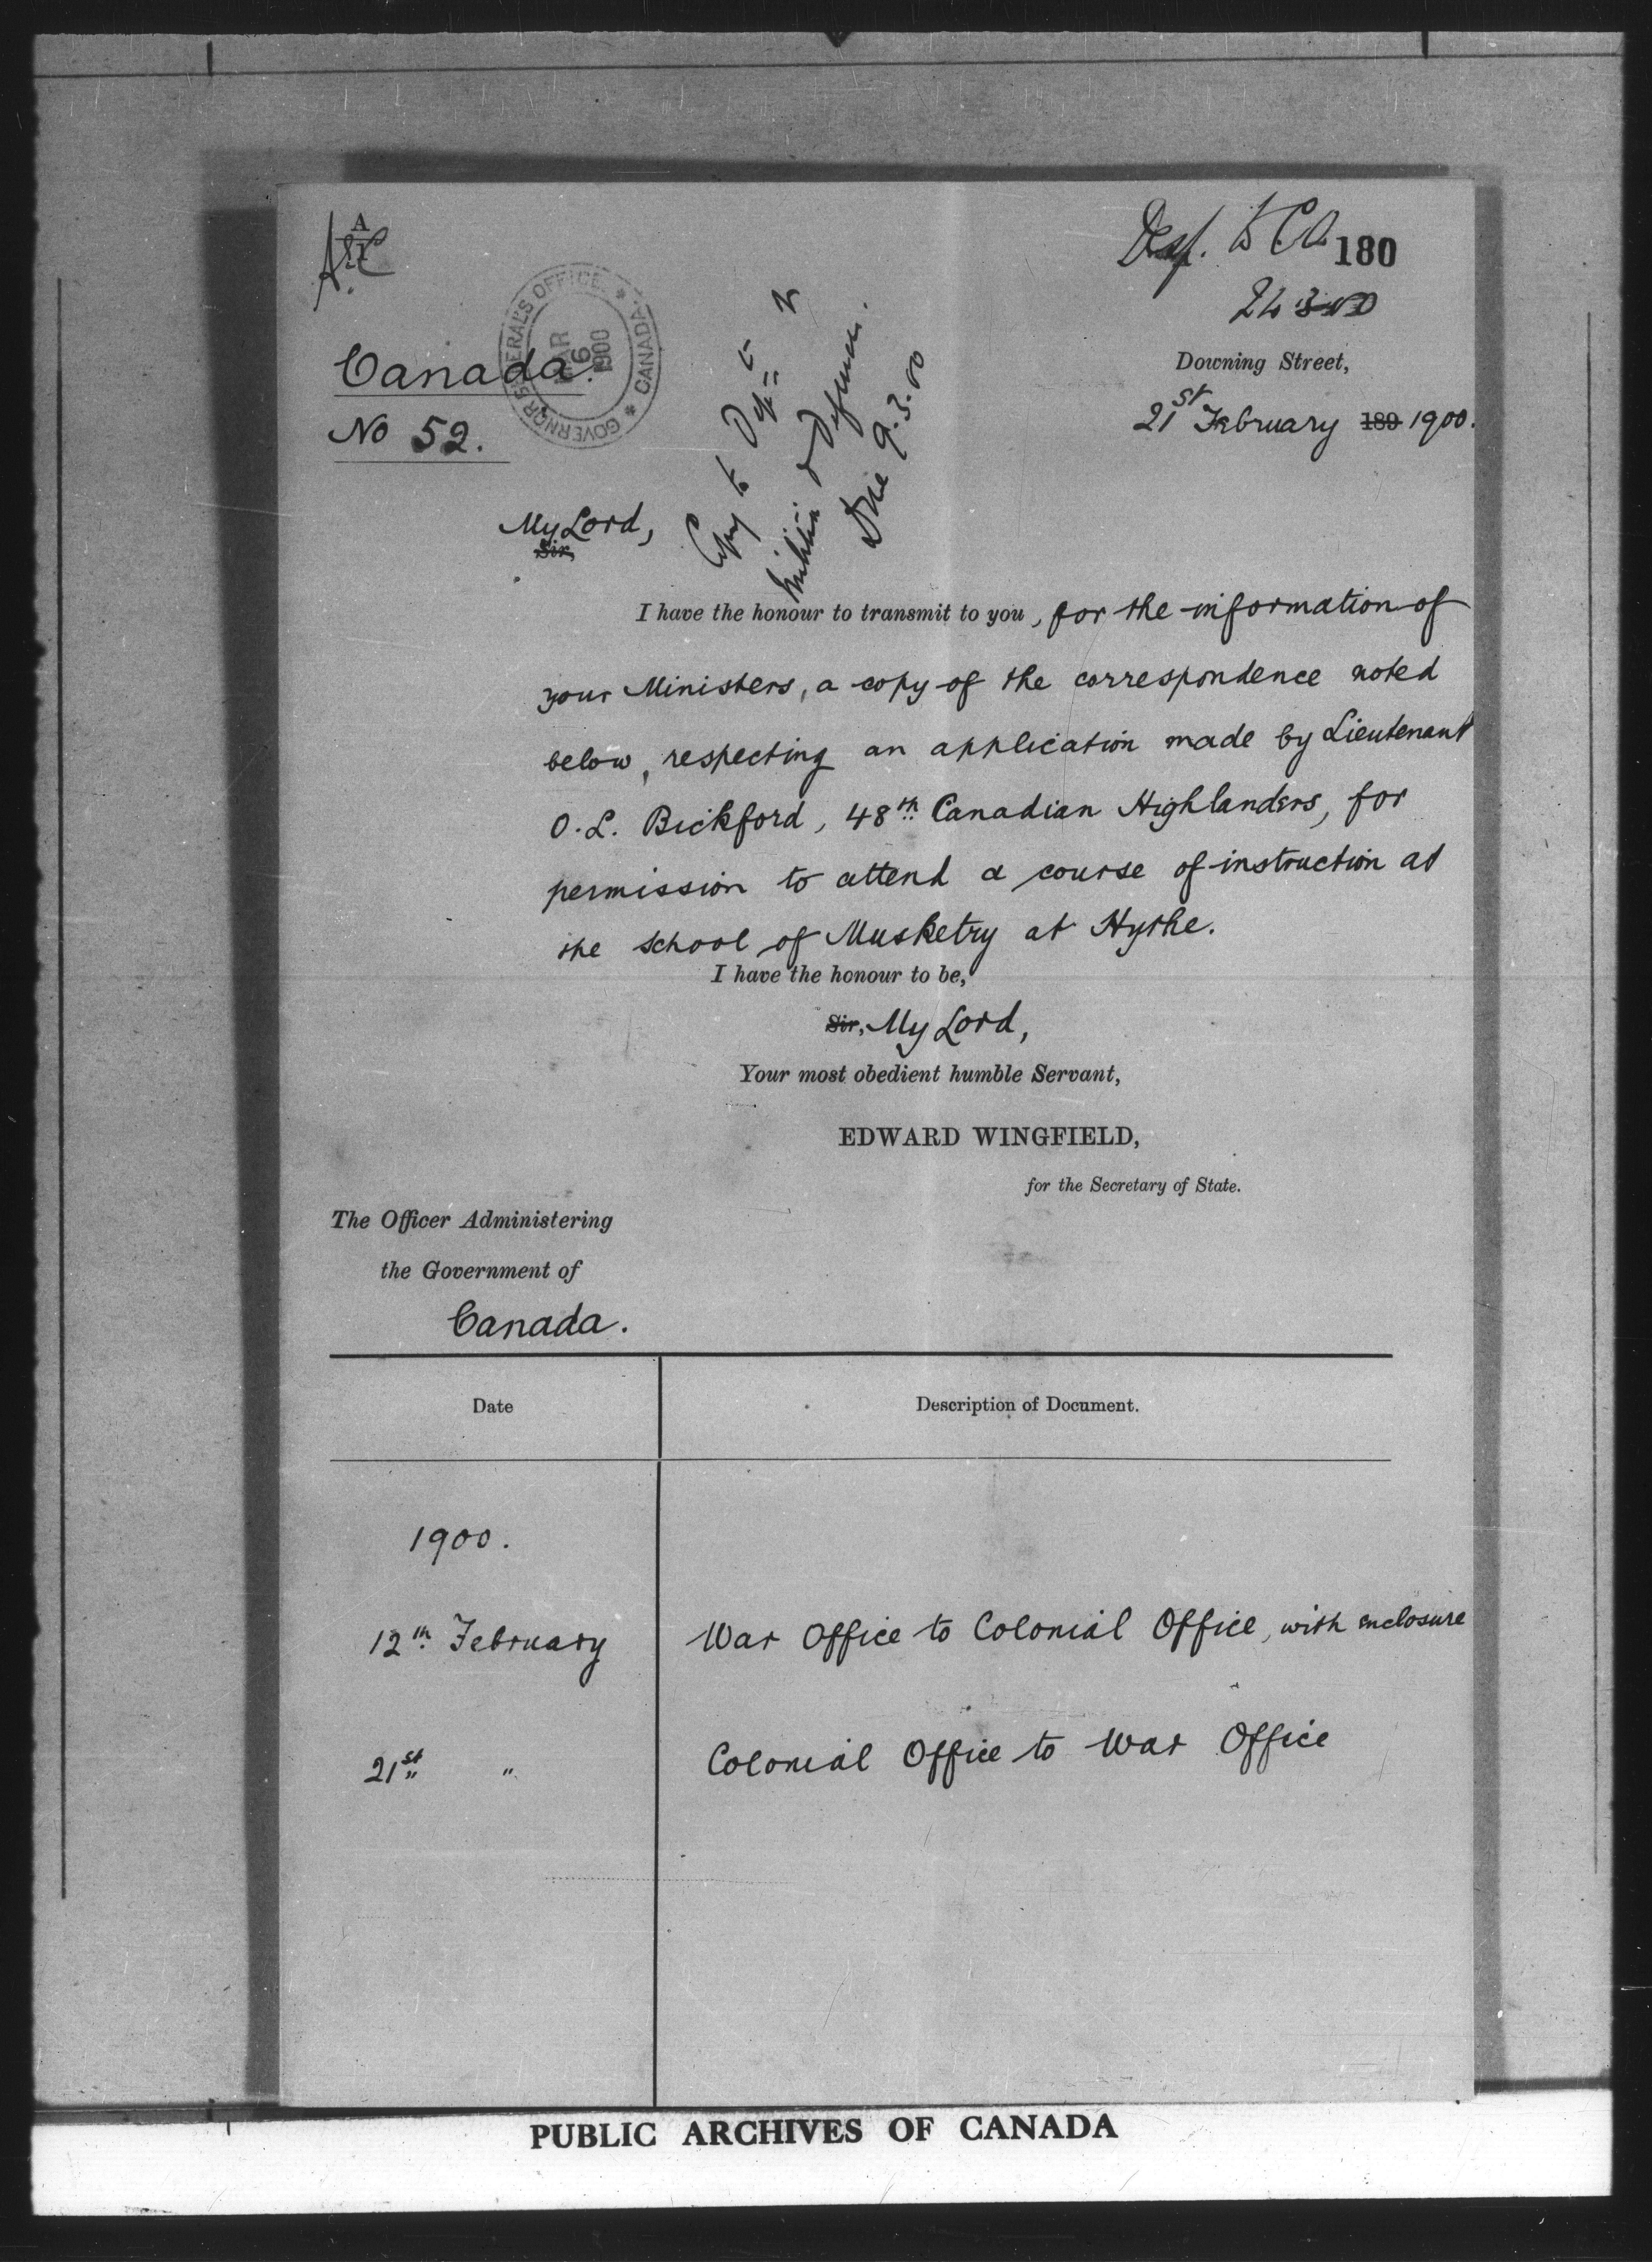 A
180
Downing Street,
21st February 189 1900.
GOVERNOR GENERAL'S OFFICE. * CANADA *
MAR
6
1900
Canada.
No 52.
Copy to
Militia & Defence.
9.3.00
My Lord,
Sir,
I have the honour to transmit to you, for the information of
your Ministers, a copy of the correspondence noted
below, respecting an application made by Lieutenant
O. L. Bickford, 48th Canadian Highlanders, for
permission to attend a course of instruction at
the School of Musketry at Hythe.
I have the honour to be,
Sir, My Lord,
Your most obedient humble Servant,
EDWARD WINGFIELD,
for the Secretary of State.
The Officer Administering
the Government of
Canada.
Date Description of Document.
1900.
12th February War Office to Colonial Office, with enclosure
21st " Colonial Office to War Office
PUBLIC ARCHIVES OF CANADA